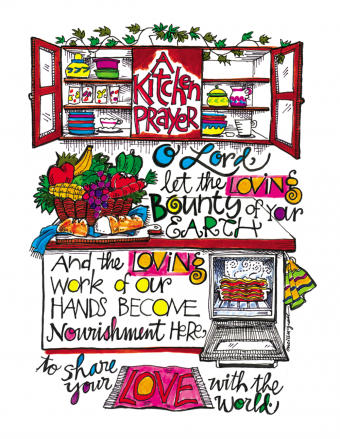 A
Kitchen
PRAYER
O Lord
let the LOVING
Bounty of Your
EARTH
And the LOVING
work of our
HANDS BECOME
Nourishment HERE
to share
your LOVE with the
World